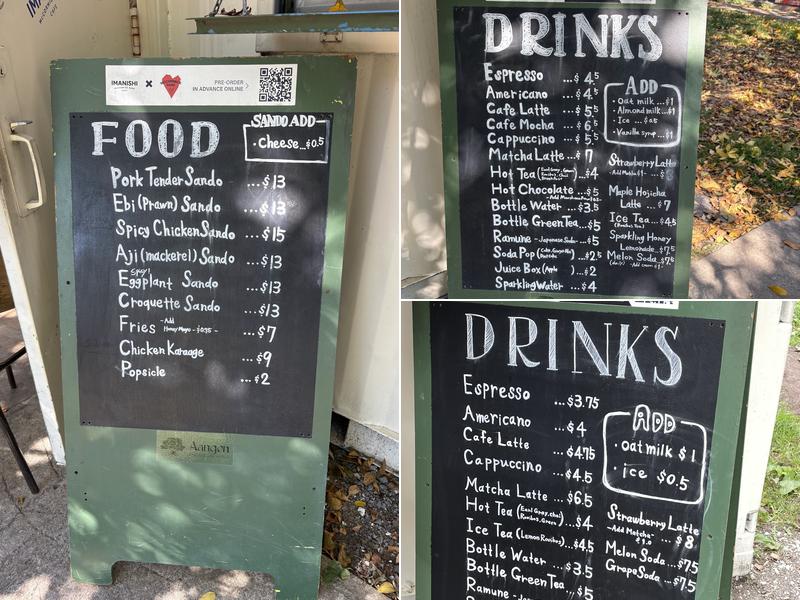 IMANISHI
×
PRE-ORDER
IN ADVANCE ONLINE
FOOD
SANDO ADD
· Cheese...$0.5
Pork Tender Sando ...$13
Ebi (Prawn) Sando ...$13
Spicy Chicken Sando ...$15
Aji (mackerel) Sando ...$13
Spicy!
Eggplant Sando ...$13
Croquette Sando ...$13
Fries -Add Honey Mayo - $0.95- ...$7
Chicken Karaage ...$9
Popsicle ...$2
Aangen
DRINKS
Espresso ...$4.5
Americano ...$4.5
Cafe Latte ...$5.5
Cafe Mocha ...$6.5
Cappuccino ...$5.5
Matcha Latte ...$7
Hot Tea (Earl Grey, Green ...$4
Hot Chocolate ...$5
Bottle Water ...$3.5
Bottle Green Tea ...$5
Ramune -Japanese Soda- ...$5
Soda Pop ...$2.5
Juice Box (Apple ) ...$2
Sparkling Water ...$4
ADD
· Oat milk ...$1
· Almond milk...$1
· Ice ...$0.5
· Vanilla syrup...$1
Strawberry Latte
-Add Matcha $1-
Maple Hojicha
Latte ...$7
Ice Tea ...$4.5
Sparkling Honey
Lemonade...$7.5
Melon Soda...$7.5
DRINKS
Espresso ...$3.75
Americano ...$4
Cafe Latte ...$4.75
Cappuccino ...$4.5
Matcha Latte ...$6.5
Hot Tea (Earl Gray, chai Rooibos, Green) ...$4
Ice Tea (Lemon Rooibos) ...$4.5
Bottle Water ...$3.5
Bottle Green Tea ...$5
Ramune
ADD
· oat milk $1
· ice $0.5
Strawberry Latte
-Add Matcha- ...$8
Melon Soda ...$7.5
Grape Soda ...$7.5